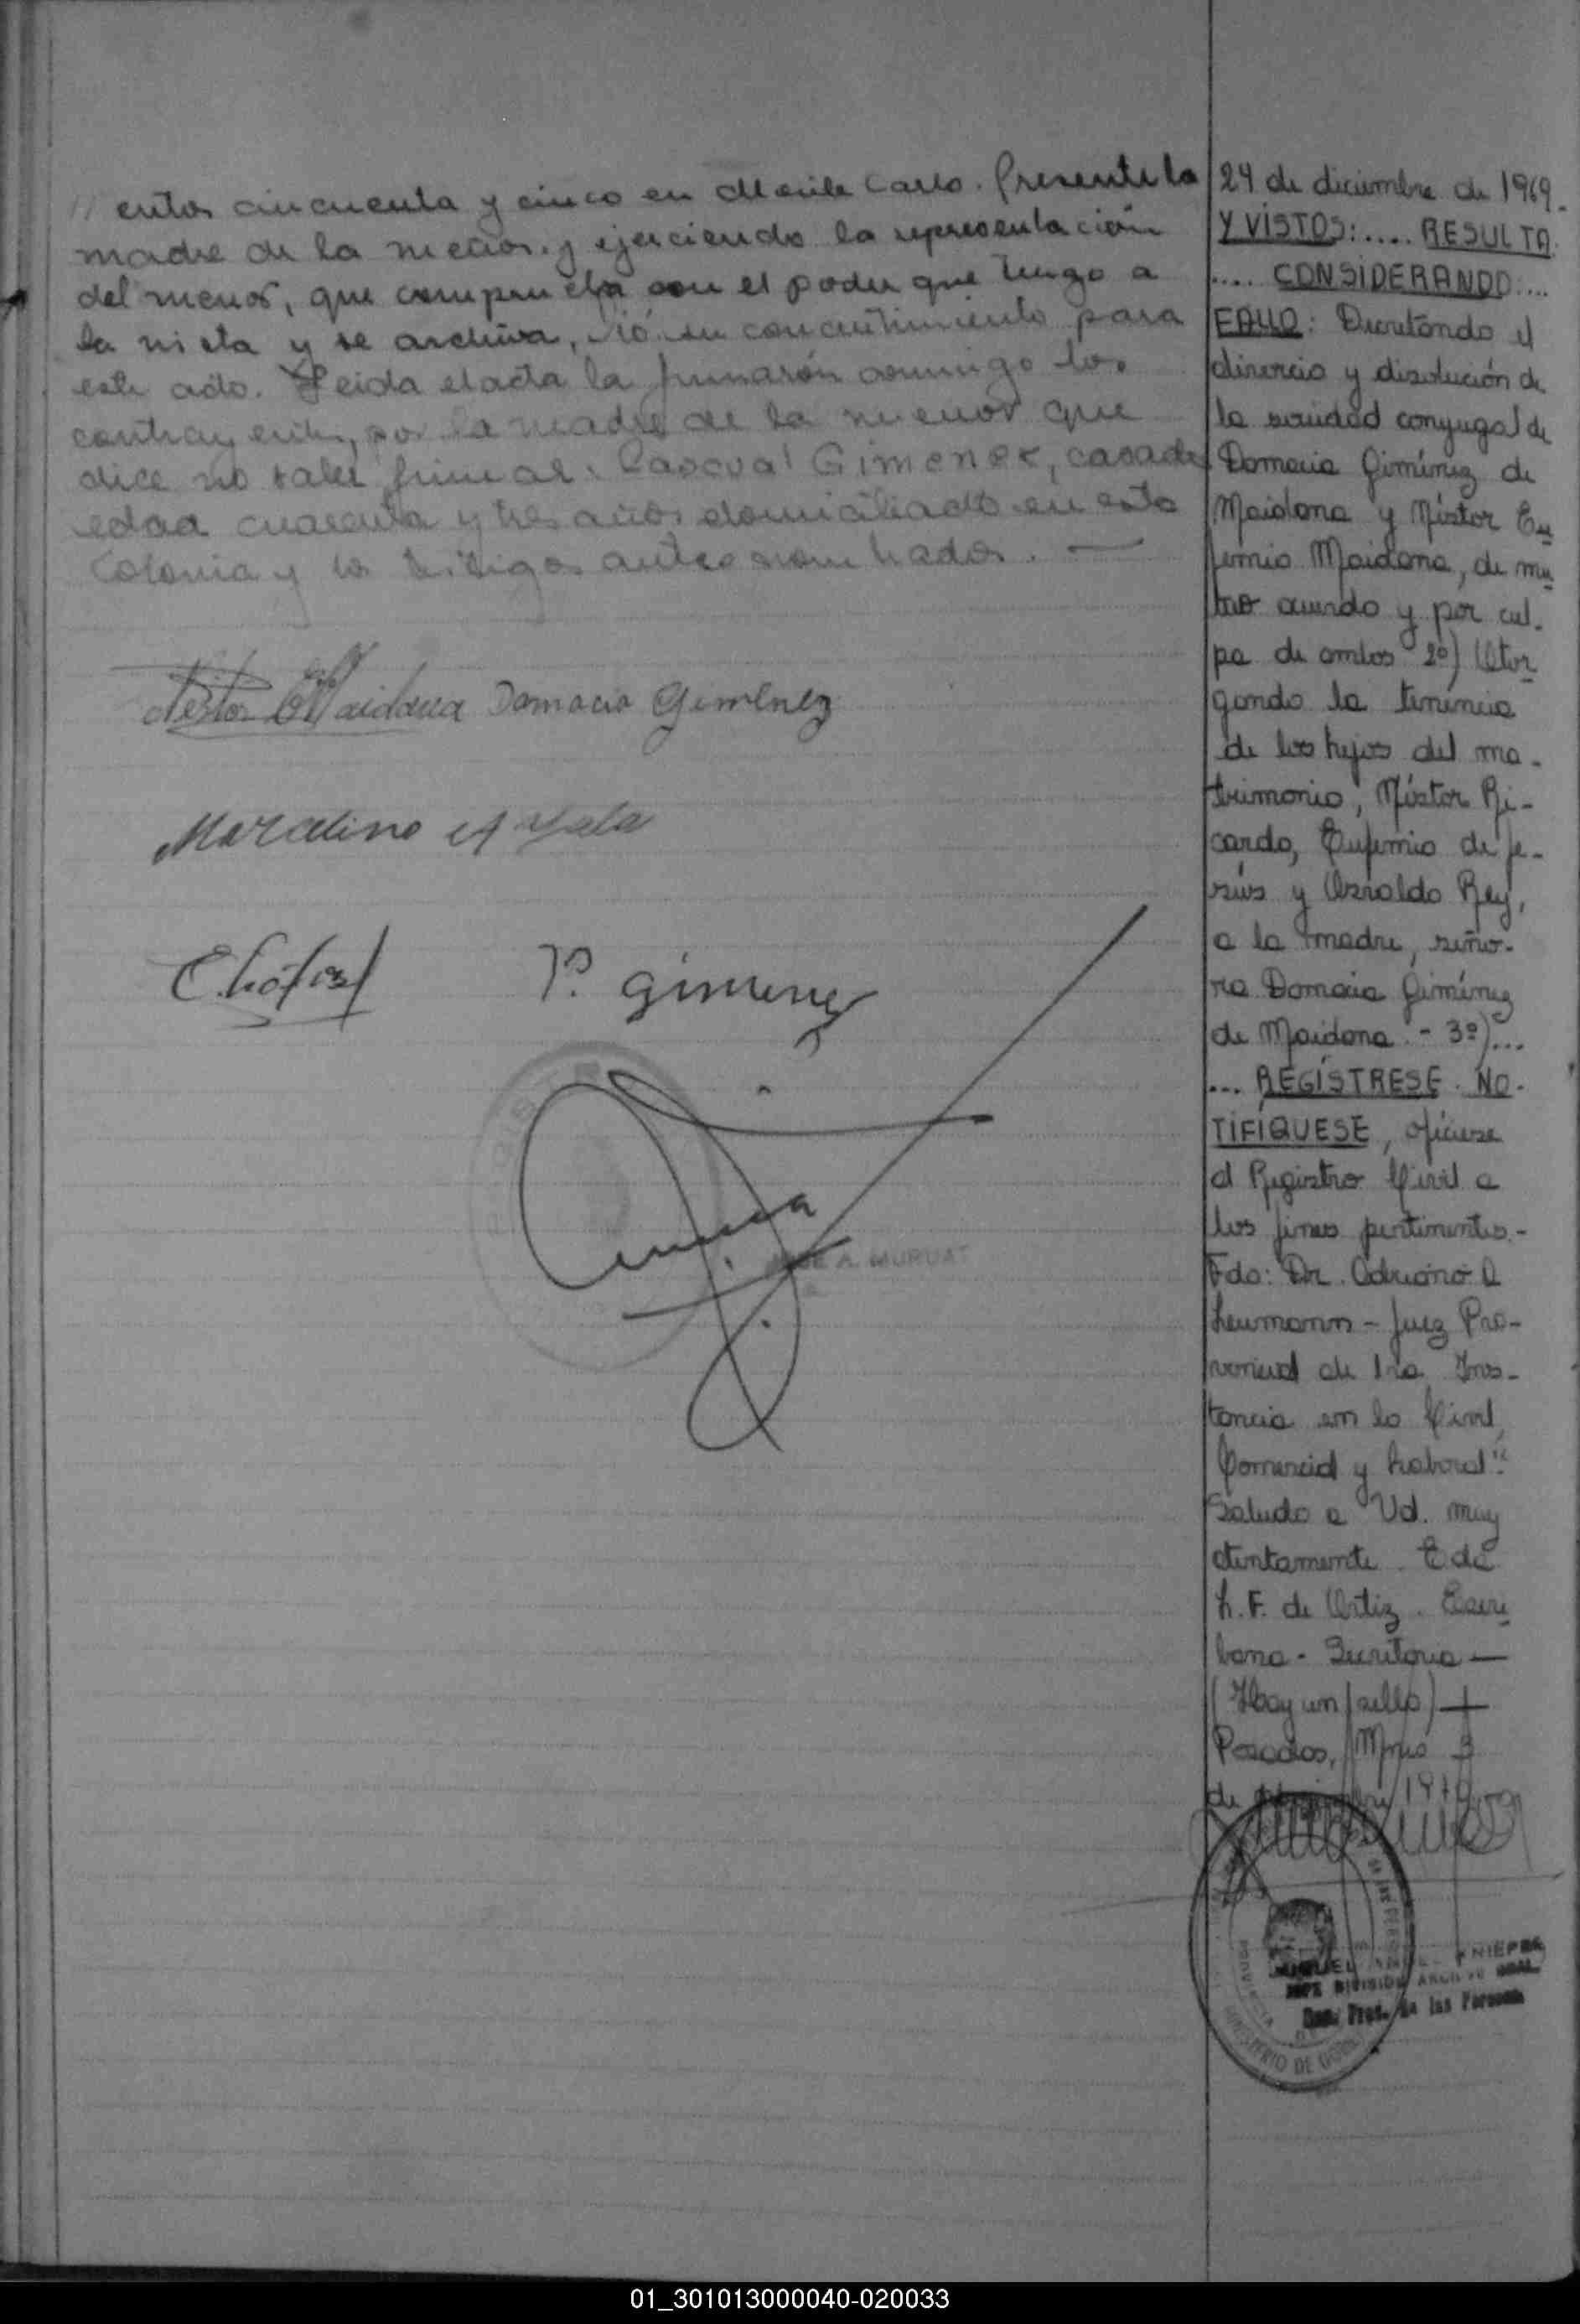 // entos cincuenta y cinco en Monte Carlo. Presente la
madre de la menor y ejerciendo la representación
del menor, que comprueba con el poder que tengo a
la vista y se archiva, dió su consentimiento para
este acto. Leida el acta la firmarón conmigo los
contrayentes, por la madre de la menor que
dice no saber firmar: Pascual Gimenez, casado
edad cuarenta y tres años domiciliado en esta
Colonia y los testigos antes nombrados. —
Nestor E Maidana Damacia Gimenez
Marcelino Ayala
P. Gimenez
JOSE A. MURUAT
24 de diciembre de 1969.
Y VISTOS: .... RESULTA:
.... CONSIDERANDO: ...
FALLO: Decretando el
divorcio y disolución de
la sociedad conyugal de
Damacia Giménez de
Maidana y Néstor Eu
femio Maidana, de mu
tuo acuerdo y por cul-
pa de ambos 2º) Otor
gando la tenencia
de los hijos del ma-
trimonio, Néstor Ri-
cardo, Eufemio de Je-
sús y Osvaldo Rey,
a la madre, seño-
ra Damacia Giménez
de Maidana. - 3º)...
... REGÍSTRESE. NO-
TIFÍQUESE, ofíciese
al Registro Civil a
los fines pertinentes.-
Fdo: Dr. Adriano A
Leumann - Juez Pro-
vincial de 1ra Ins-
tancia en lo Civil,
Comercial y Laboral".
Saludo a Ud. muy
atentamente. Eda
L. F. de Ortiz. Escri
bana - Secretaria —
(Hay un sello) —
Posadas, Mnes 3
de 1970
MIGUEL
JEFE DIVISION ARCHIVO GRAL.
de las Personas
MINISTERIO DE GOB